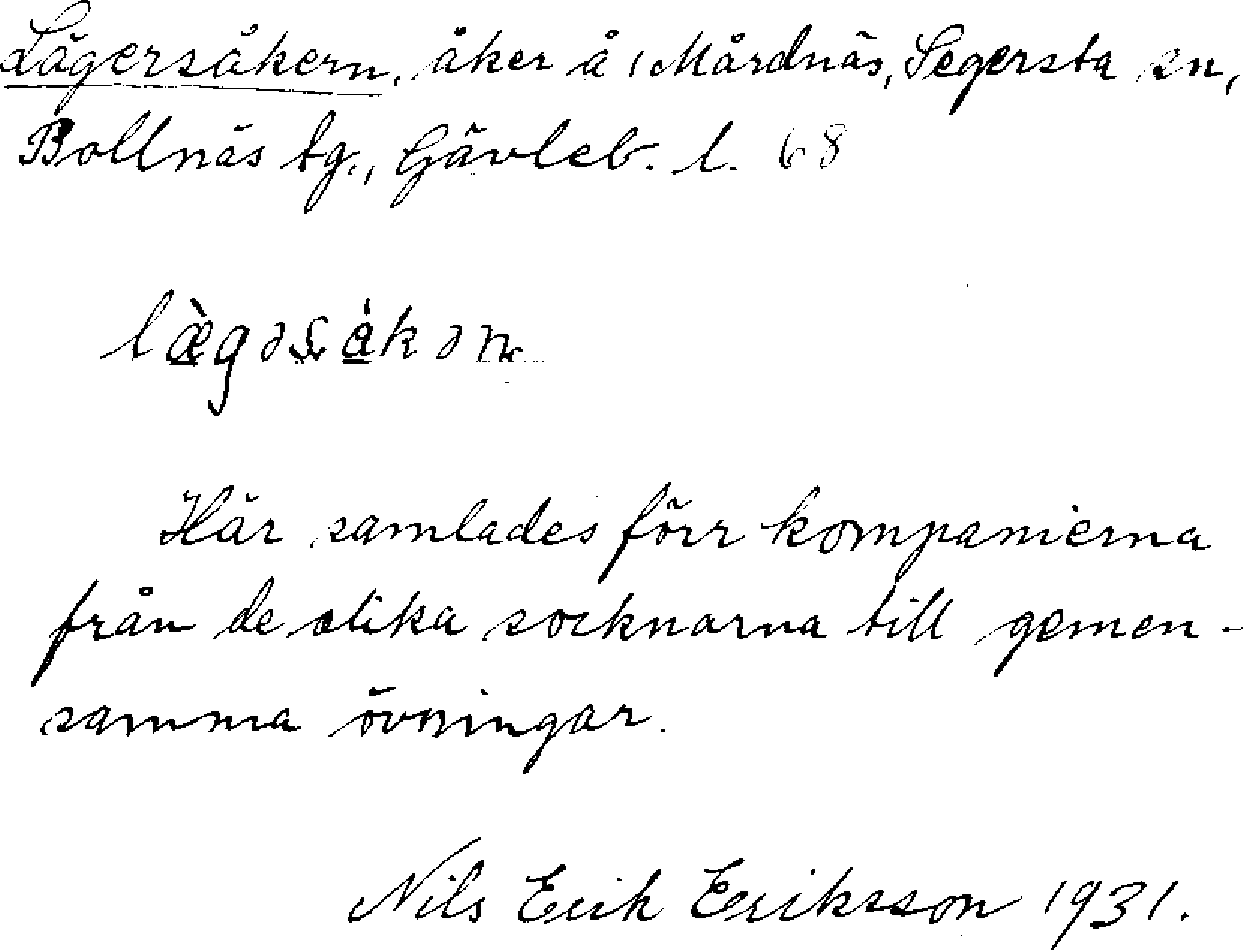 Lägersåkern, åker å Mårdnäs, Segersta sn,
Bollnäs tg., Gävleb. l. 68
Här samlades förr kompanierna
från de olika socknarna till gemen-
samma övningar.
Nils Erik Eriksson 1931.